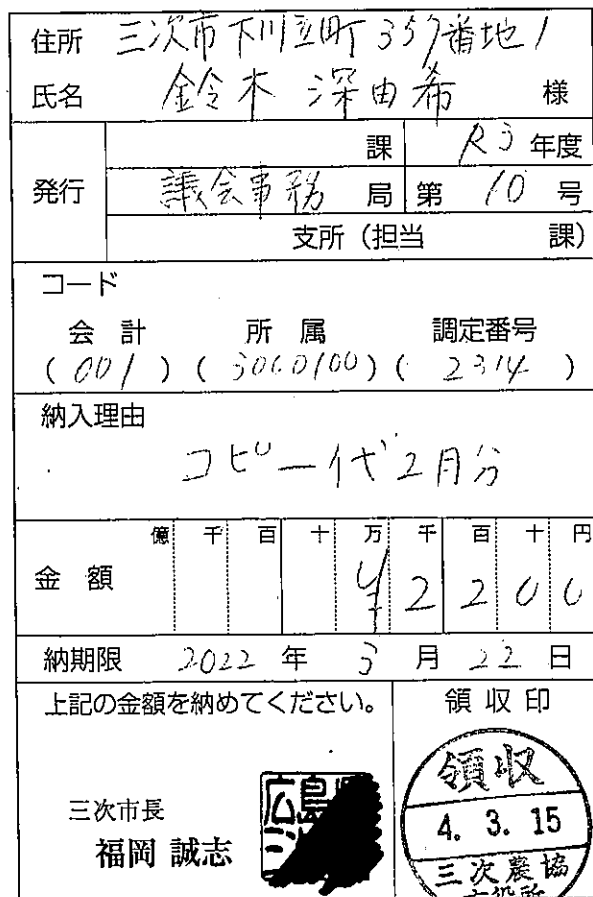 住所 三次市下川立町357番地1
氏名 鈴木 深由希 様
発行
課 R3年度
議会事務局 第10号
支所(担当 課)
コード
会計 所属 調定番号
(001) (3060100) (2314)
納入理由
コピー代2月分
億 千 百 十 万 千 百 十 円
金額 ¥2200
納期限 2022年3月22日
上記の金額を納めてください。
三次市長
福岡 誠志
広島
領収印
領収
4. 3. 15
三次農協